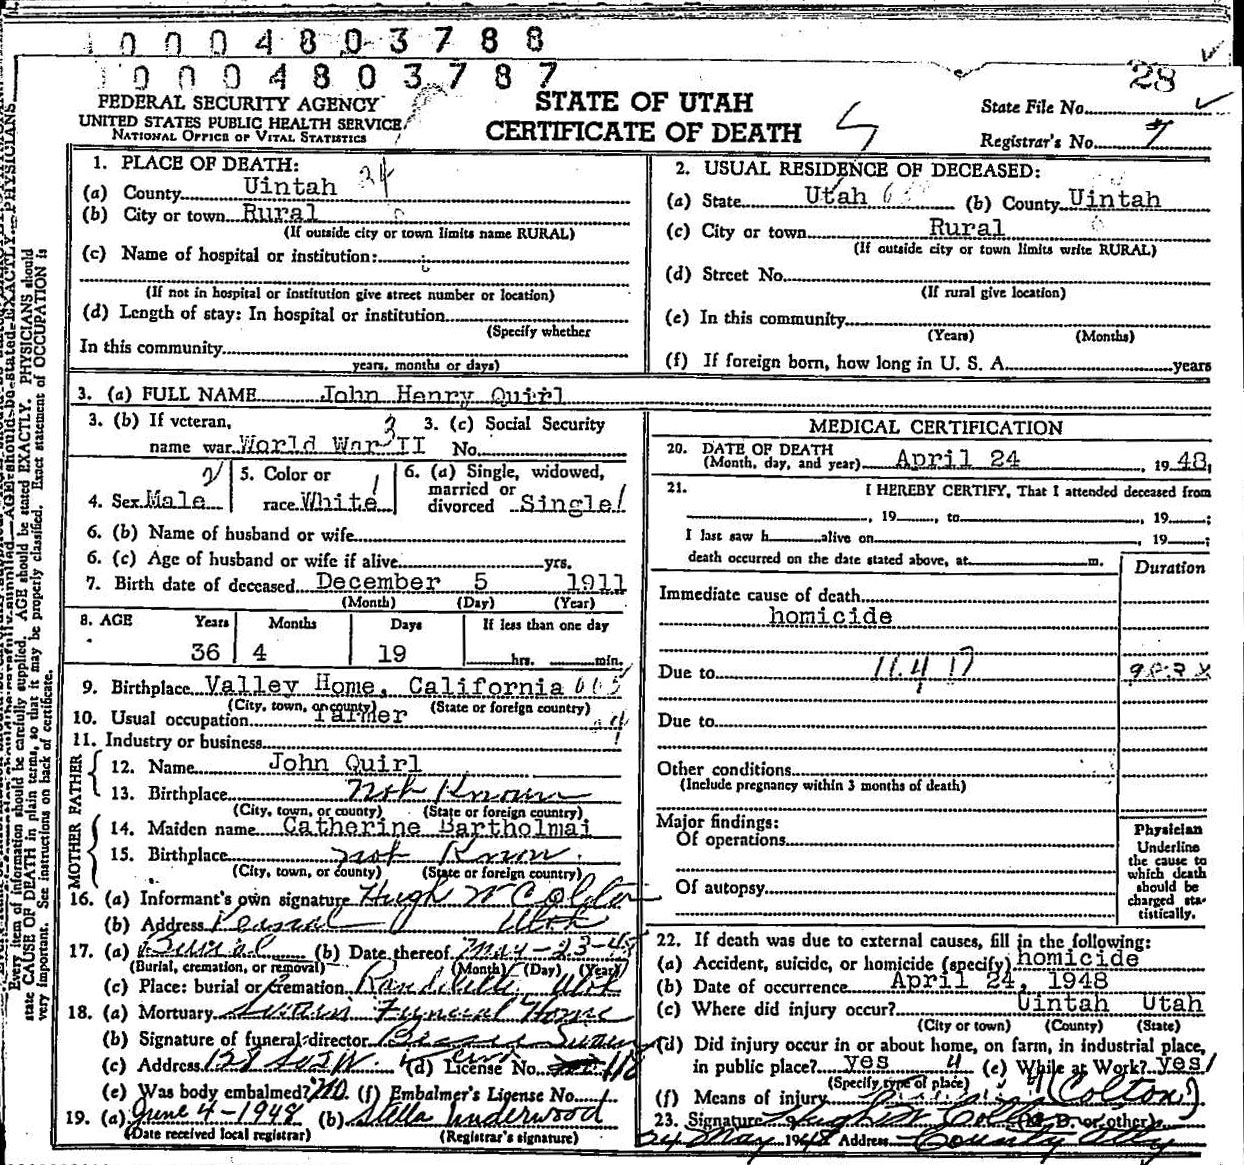 0 0 0 4 8 0 3 7 8 8
0 0 0 4 8 0 3 7 8 7
28
FEDERAL SECURITY AGENCY
UNITED STATES PUBLIC HEALTH SERVICE
NATIONAL OFFICE OF VITAL STATISTICS
STATE OF UTAH
CERTIFICATE OF DEATH
State File No.
Registrar's No. 7
1. PLACE OF DEATH:
(a) County Uintah 24
(b) City or town Rural
(If outside city or town limits name RURAL)
(c) Name of hospital or institution:
(If not in hospital or institution give street number or location)
(d) Length of stay: In hospital or institution
(Specify whether
In this community
years, months or days)
2. USUAL RESIDENCE OF DECEASED:
(a) State Utah (b) County Uintah
(c) City or town Rural
(If outside city or town limits write RURAL)
(d) Street No.
(If rural give location)
(e) In this community
(Years) (Months)
(f) If foreign born, how long in U. S. A. years
3. (a) FULL NAME John Henry Quirl
3. (b) If veteran, name war World War II
3. (c) Social Security No.
4. Sex Male
5. Color or race White
6. (a) Single, widowed, married or divorced Single
6. (b) Name of husband or wife
6. (c) Age of husband or wife if alive yrs.
7. Birth date of deceased December 5 1911
(Month) (Day) (Year)
8. AGE Years Months Days If less than one day
36 4 19 hrs. min.
9. Birthplace Valley Home, California
(City, town, or county) (State or foreign country)
10. Usual occupation Farmer
11. Industry or business
FATHER
12. Name John Quirl
13. Birthplace not Known
(City, town, or county) (State or foreign country)
MOTHER
14. Maiden name Catherine Bartholmai
15. Birthplace not Know.
(City, town, or county) (State or foreign country)
16. (a) Informant's own signature Hugh W Colton
(b) Address Vernal Utah
17. (a) Burial (b) Date thereof May-23-48
(Burial, cremation, or removal) (Month) (Day) (Year)
(c) Place: burial or cremation Randlett Utah
18. (a) Mortuary Funeral Home
(b) Signature of funeral director
(c) Address (d) License No.
(e) Was body embalmed? No (f) Embalmer's License No.
19. (a) June 4-1948 (b) Stella Underwood
(Date received local registrar) (Registrar's signature)
MEDICAL CERTIFICATION
20. DATE OF DEATH
(Month, day, and year) April 24, 1948
21. I HEREBY CERTIFY, That I attended deceased from
, 19 , to , 19 ;
I last saw h alive on , 19 ;
death occurred on the date stated above, at m.
Duration
Immediate cause of death
homicide
Due to
Due to
Other conditions
(Include pregnancy within 3 months of death)
Major findings:
Of operations
Of autopsy
Physician
Underline
the cause to
which death
should be
charged sta-
tistically.
22. If death was due to external causes, fill in the following:
(a) Accident, suicide, or homicide (specify) homicide
(b) Date of occurrence April 24, 1948
(c) Where did injury occur? Uintah Utah
(City or town) (County) (State)
(d) Did injury occur in or about home, on farm, in industrial place,
in public place? yes 4 (e) While at Work? yes
(Specify type of place)
(f) Means of injury (Colton)
23. Signature Hugh W Colton (M. D. or other)
24 May 1948 Address County Atty
Every item of information should be carefully supplied. AGE should be stated EXACTLY. PHYSICIANS should
state CAUSE OF DEATH in plain terms, so that it may be properly classified. Exact statement of OCCUPATION is
very important. See instructions on back of certificate.